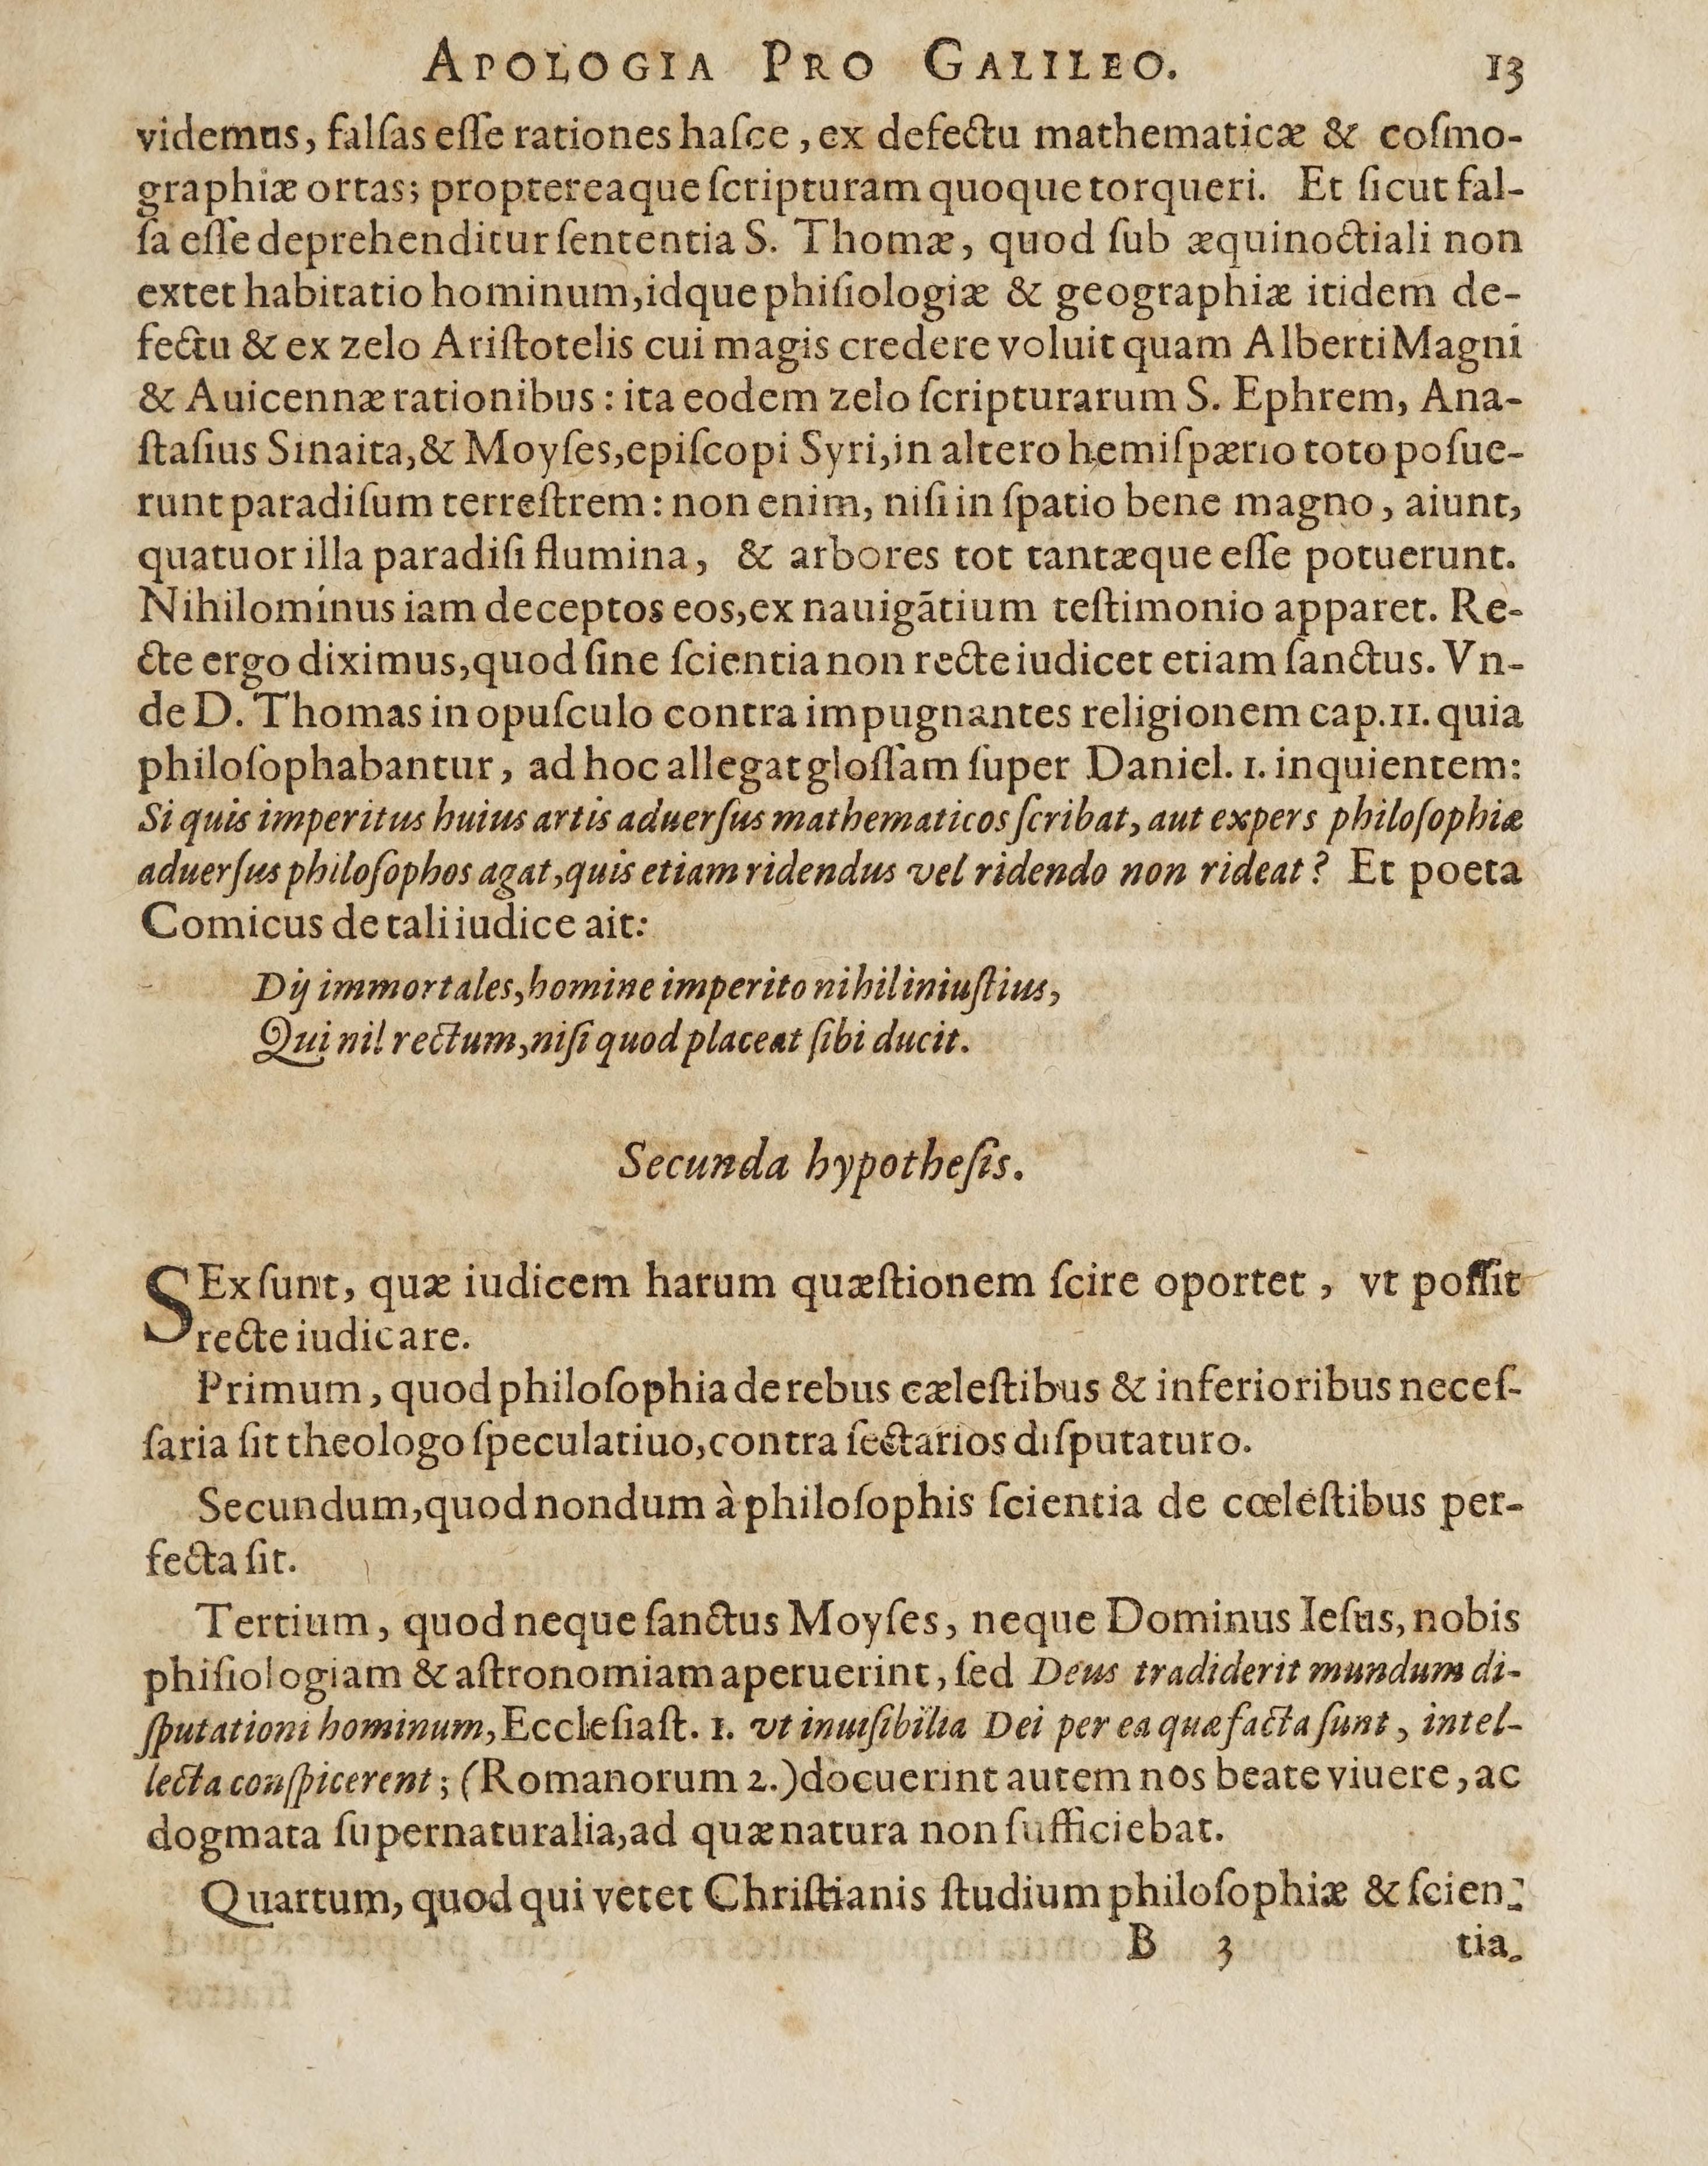 APOLOGIA PRO GALILEO. 13
videmus, falſas eſſe rationes haſce, ex defectu mathematicæ & coſmo-
graphiæ ortas; proptereaque ſcripturam quoque torqueri. Et ſicut fal-
ſa eſſe deprehenditur ſententia S. Thomæ, quod ſub æquinoctiali non
extet habitatio hominum, idque phiſiologiæ & geographiæ itidem de-
fectu & ex zelo Ariſtotelis cui magis credere voluit quam Alberti Magni
& Auicennæ rationibus: ita eodem zelo ſcripturarum S. Ephrem, Ana-
ſtaſius Sinaita, & Moyſes, epiſcopi Syri, in altero hemiſpærio toto poſue-
runt paradiſum terreſtrem: non enim, niſi in ſpatio bene magno, aiunt,
quatuor illa paradiſi flumina, & arbores tot tantæque eſſe potuerunt.
Nihilominus iam deceptos eos, ex nauigãtium teſtimonio apparet. Re-
cte ergo diximus, quod ſine ſcientia non recte iudicet etiam ſanctus. Vn-
de D. Thomas in opuſculo contra impugnantes religionem cap. 11. quia
philoſophabantur, ad hoc allegat gloſſam ſuper Daniel. 1. inquientem:
Si quis imperitus huius artis aduerſus mathematicos ſcribat, aut expers philoſophiæ
aduerſus philoſophos agat, quis etiam ridendus vel ridendo non rideat? Et poeta
Comicus de tali iudice ait:
Dij immortales, homine imperito nihil iniuſtius,
Qui nil rectum, niſi quod placeat ſibi ducit.
Secunda hypotheſis.
SEx ſunt, quæ iudicem harum quæſtionem ſcire oportet, vt poſſit
recte iudicare.
Primum, quod philoſophia de rebus cæleſtibus & inferioribus neceſ-
ſaria ſit theologo ſpeculatiuo, contra ſectarios diſputaturo.
Secundum, quod nondum à philoſophis ſcientia de cœleſtibus per-
fecta ſit.
Tertium, quod neque ſanctus Moyſes, neque Dominus Ieſus, nobis
phiſiologiam & aſtronomiam aperuerint, ſed Deus tradiderit mundum di-
ſputationi hominum, Eccleſiaſt. 1. vt inuiſibilia Dei per ea quæ facta ſunt, intel-
lecta conſpicerent; (Romanorum 2.) docuerint autem nos beate viuere, ac
dogmata ſupernaturalia, ad quæ natura non ſufficiebat.
Quartum, quod qui vetet Chriſtianis ſtudium philoſophiæ & ſcien-
B 3 tia.